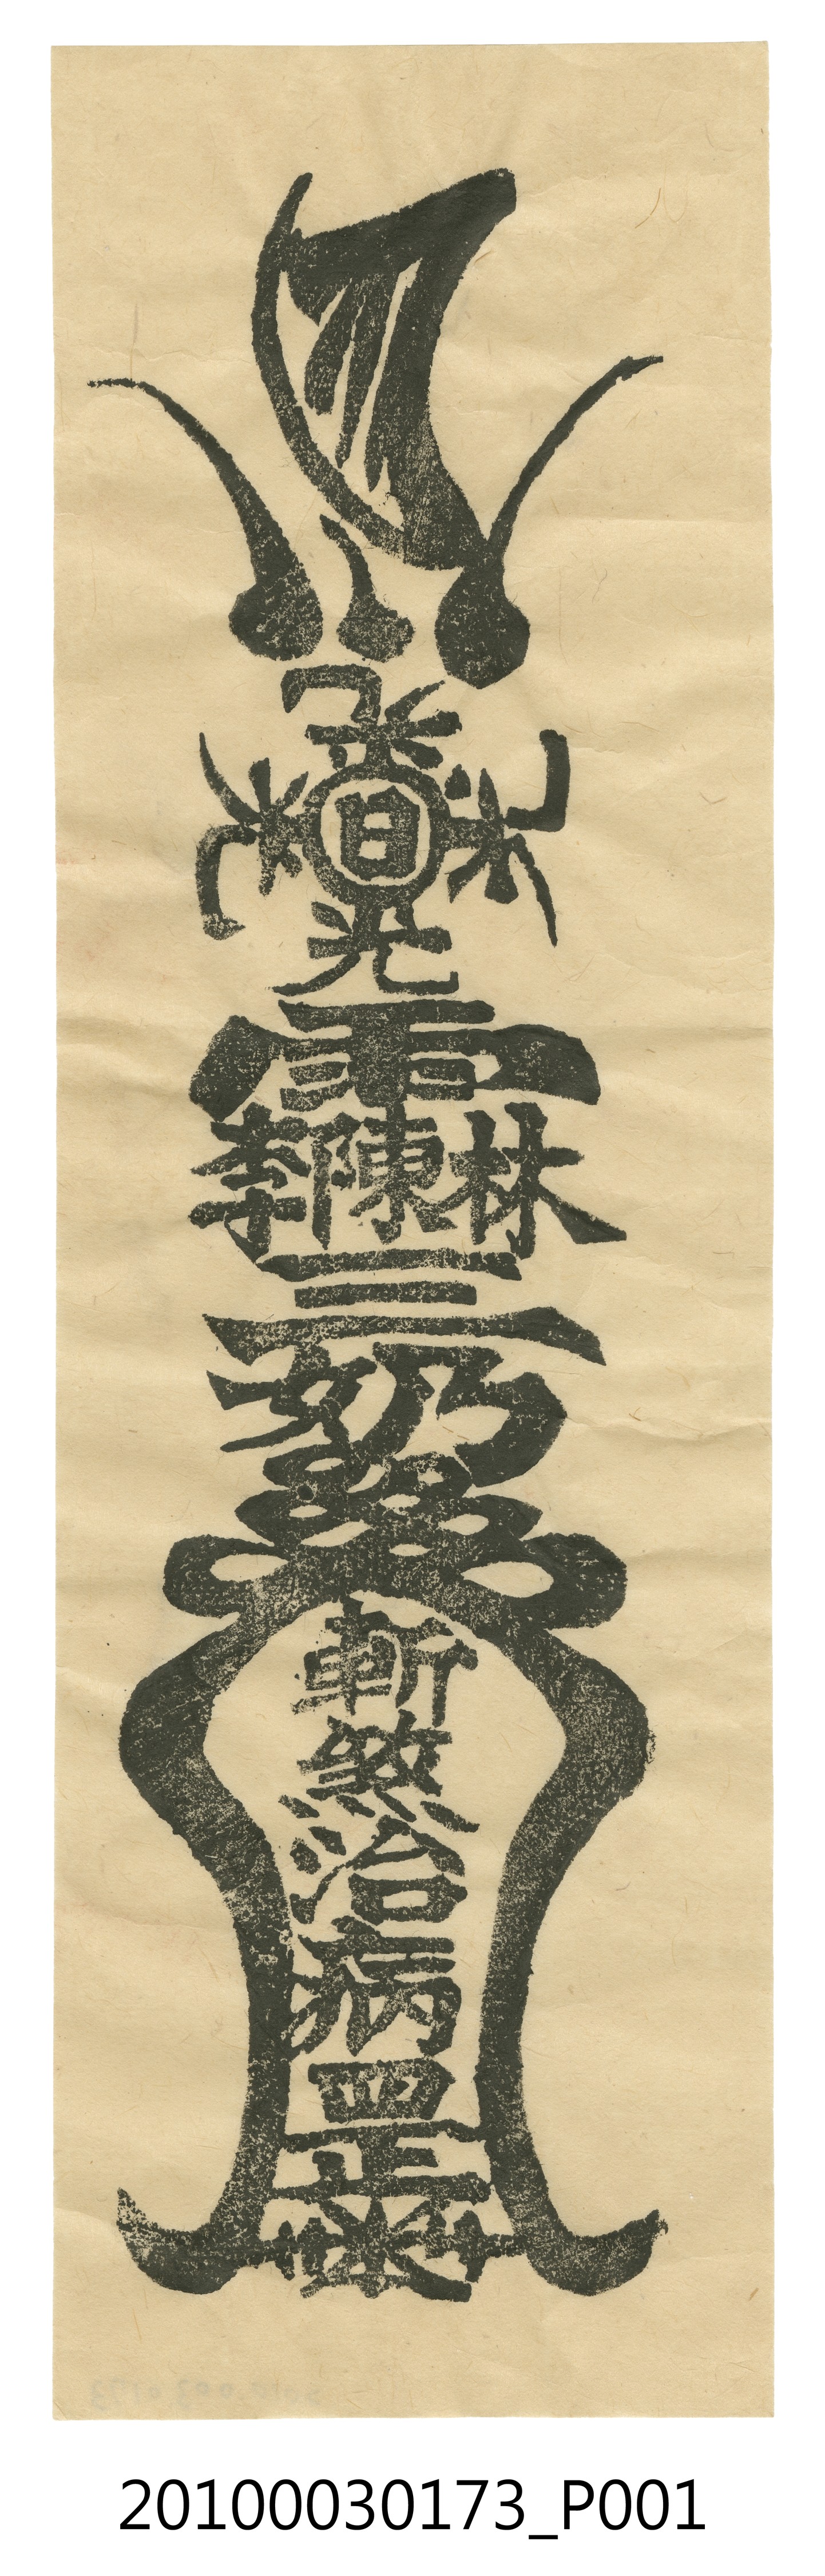 日
光
雨
李陳林
三
奶
斬
煞
治
病
罡
20100030173_P001